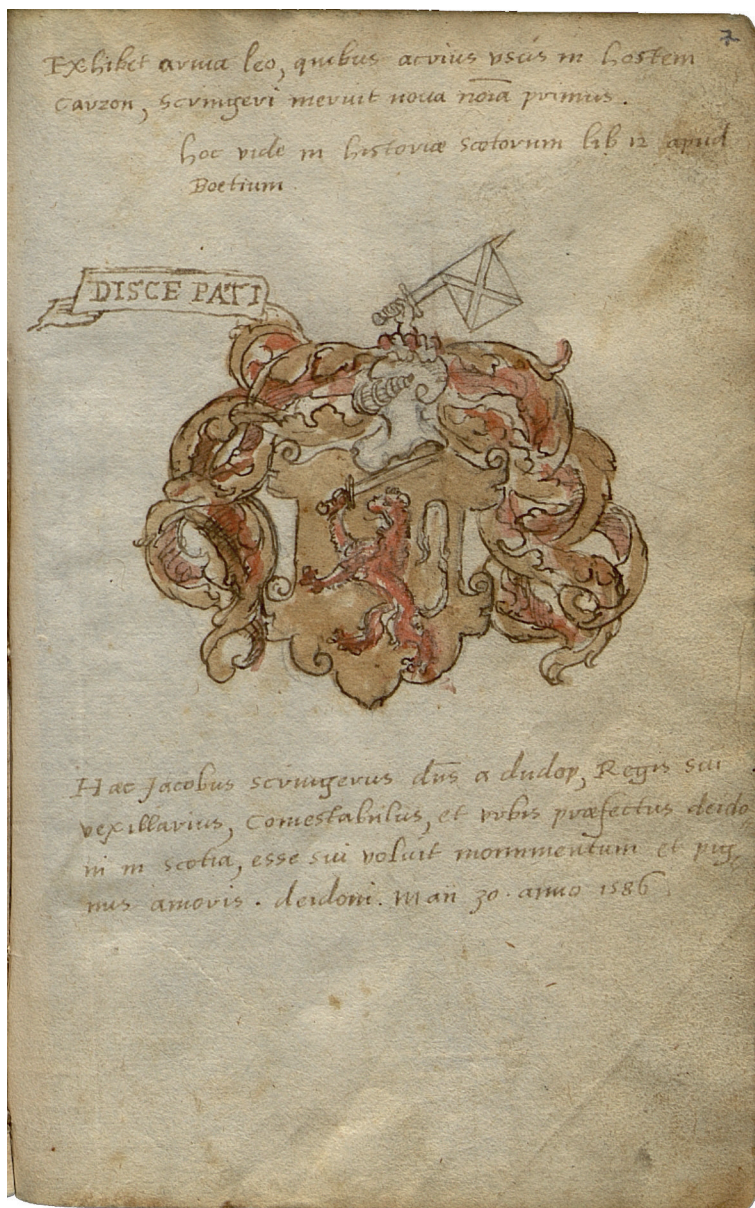 7
Exhibet arma leo, quibus acrius usus in hostem
Carzon, Scrimgeri meruit noua noĩa primus.
hoc vide in historiæ Scotorum lib 12 apud
Boetium.
DISCE PATI
Hæc Jacobus scrimgerus dñs a dudop, Regis sui
vexillarius, Comestabilius, et vrbis præfectus deido,
ni in scotia, esse sui voluit monimentum et pig,
nus amoris. deidoni. Maii 30. anno 1586.